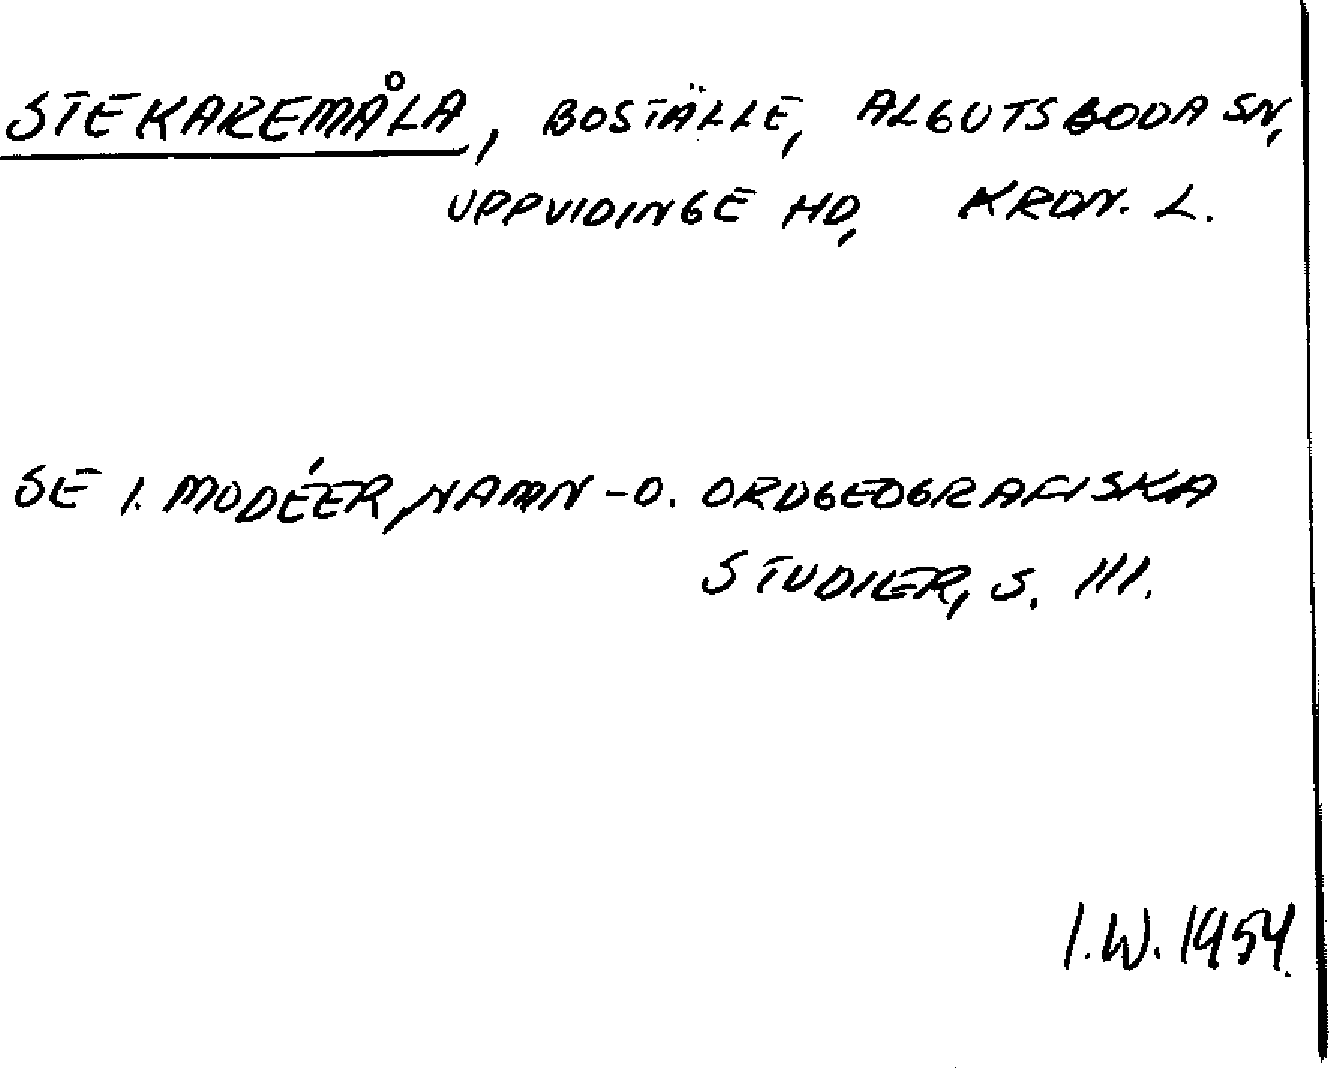 STEKAREMÅLA, BOSTÄLLE, ALGUTSBODA SN,
UPPVIDINGE HD, KRON. L.
SE I. MODÉER, NAMN-O. ORDGEOGRAFISKA
STUDIER, S. 111.
I.W. 1954.